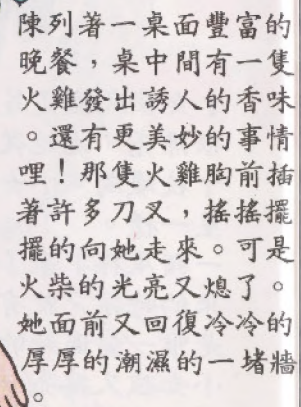 陳列著一桌面豐富的
晚餐，桌中間有一隻
火雞發出誘人的香味
。還有更美妙的事情
哩！那隻火雞胸前插
著許多刀叉，搖搖擺
擺的向她走來。可是
火柴的光亮又熄了。
她面前又回復冷冷的
厚厚的潮濕的一堵牆
。